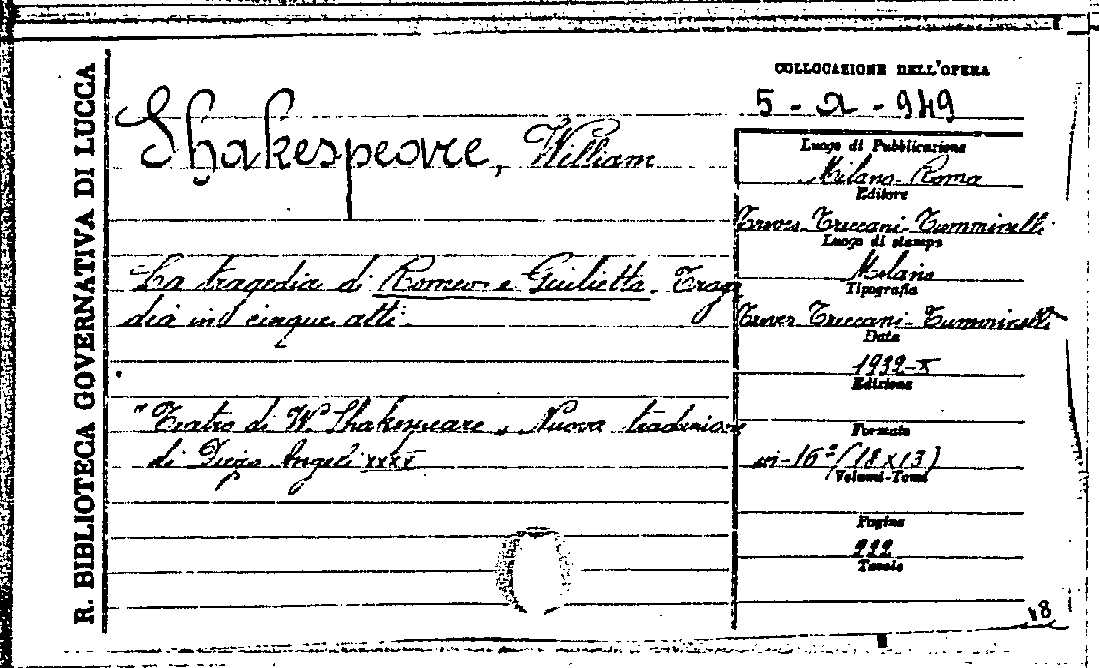 R. BIBLIOTECA GOVERNATIVA DI LUCCA
COLLOCAZIONE DELL'OPERA
5 - a - 949
Shakespeare, William
Luogo di Pubblicazione
Milano-Roma
Editore
Treves-Treccani-Tumminelli
Luogo di stampa
Milano
Tipografia
Treves Treccani-Tumminelli
Data
1932-X
Edizione
Formato
in-16° (18x13)
Volumi-Tomi
Pagine
222
Tavole
La tragedia di Romeo e Giulietta. Trage
dia in cinque atti.
"Teatro di W. Shakespeare„ Nuova traduzione
di Diego Angeli XXXX